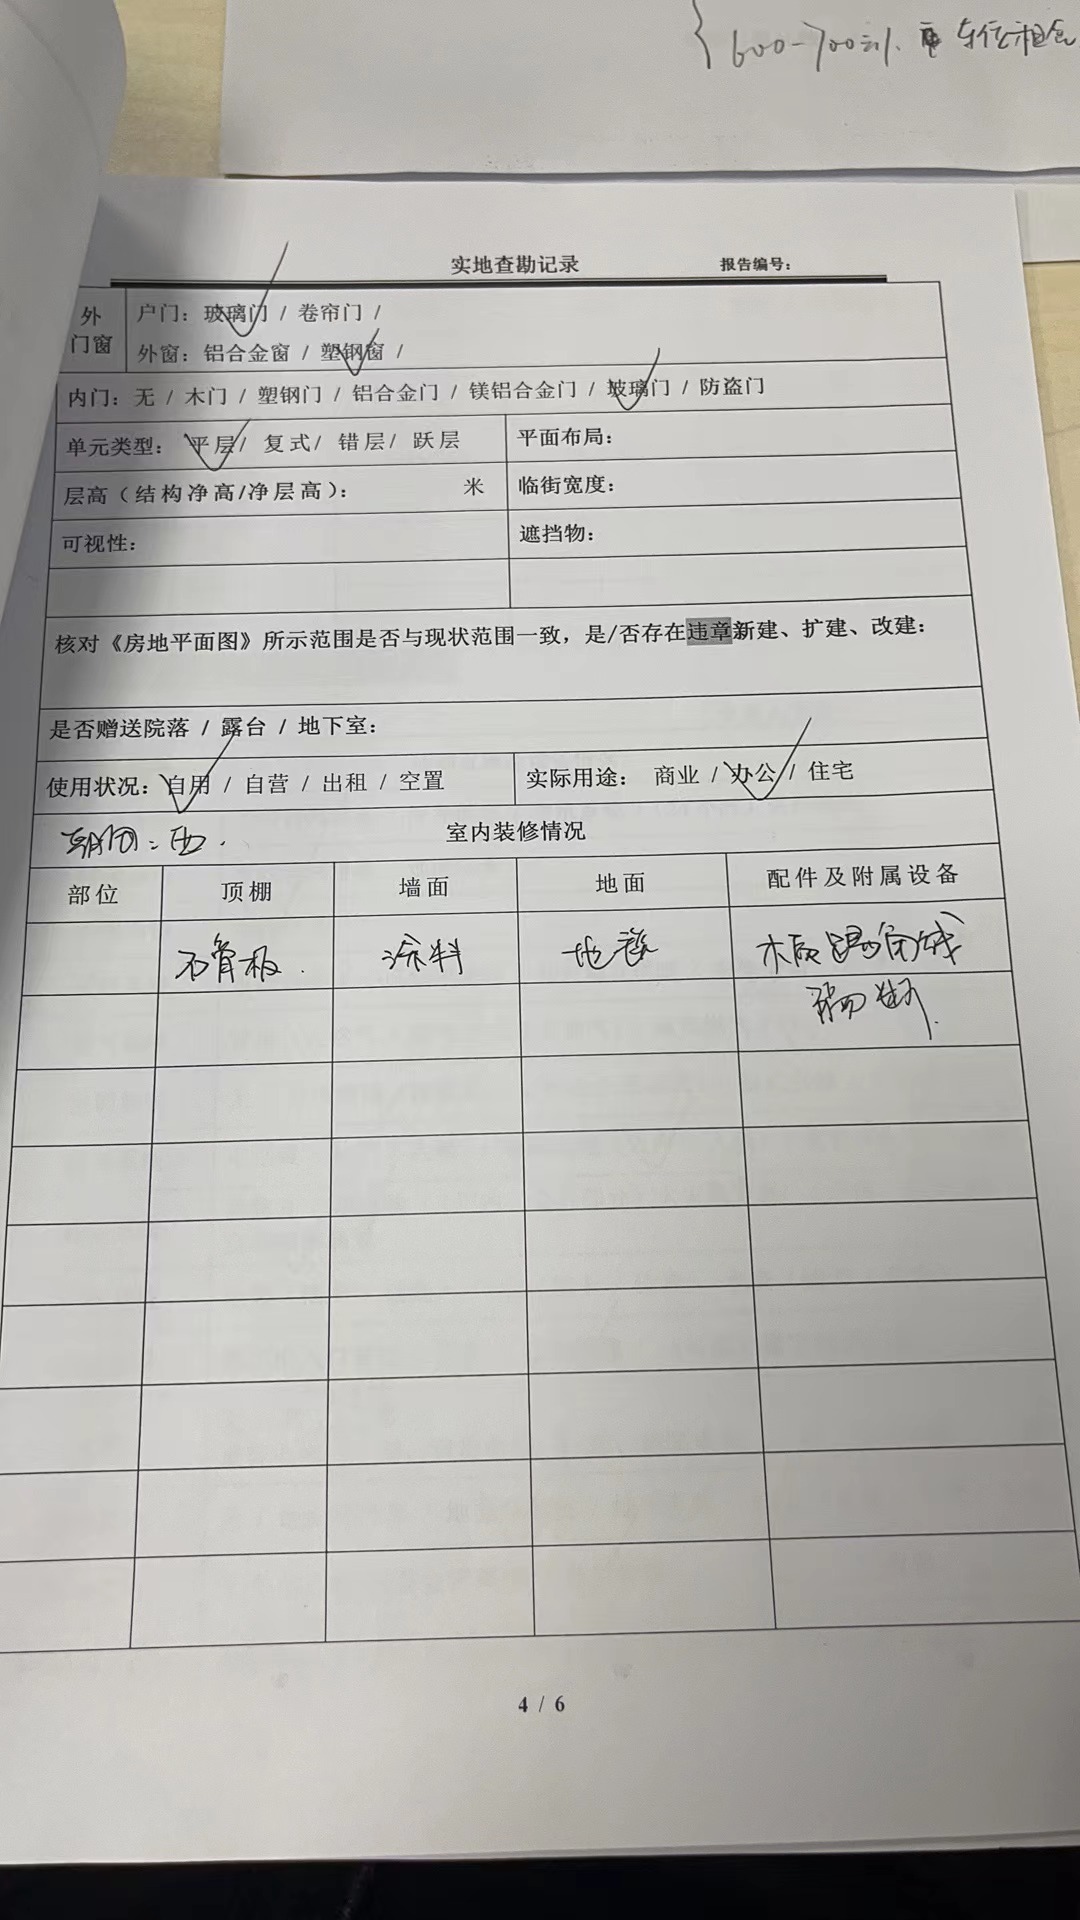 600-700元/. 车位租金
实地查勘记录 报告编号：
外门窗
户门：玻璃门 / 卷帘门 /
外窗：铝合金窗 / 塑钢窗 /
内门：无 / 木门 / 塑钢门 / 铝合金门 / 镁铝合金门 / 玻璃门 / 防盗门
单元类型： 平层/ 复式/ 错层/ 跃层 平面布局：
层高（结构净高/净层高）： 米 临街宽度：
可视性： 遮挡物：
核对《房地平面图》所示范围是否与现状范围一致，是/否存在违章新建、扩建、改建：
是否赠送院落 / 露台 / 地下室：
使用状况：自用 / 自营 / 出租 / 空置 实际用途： 商业 / 办公 / 住宅
朝向：西. 室内装修情况
部位 顶棚 墙面 地面 配件及附属设备
石膏板. 涂料 地毯 木质踢脚线
隔断.
4 / 6